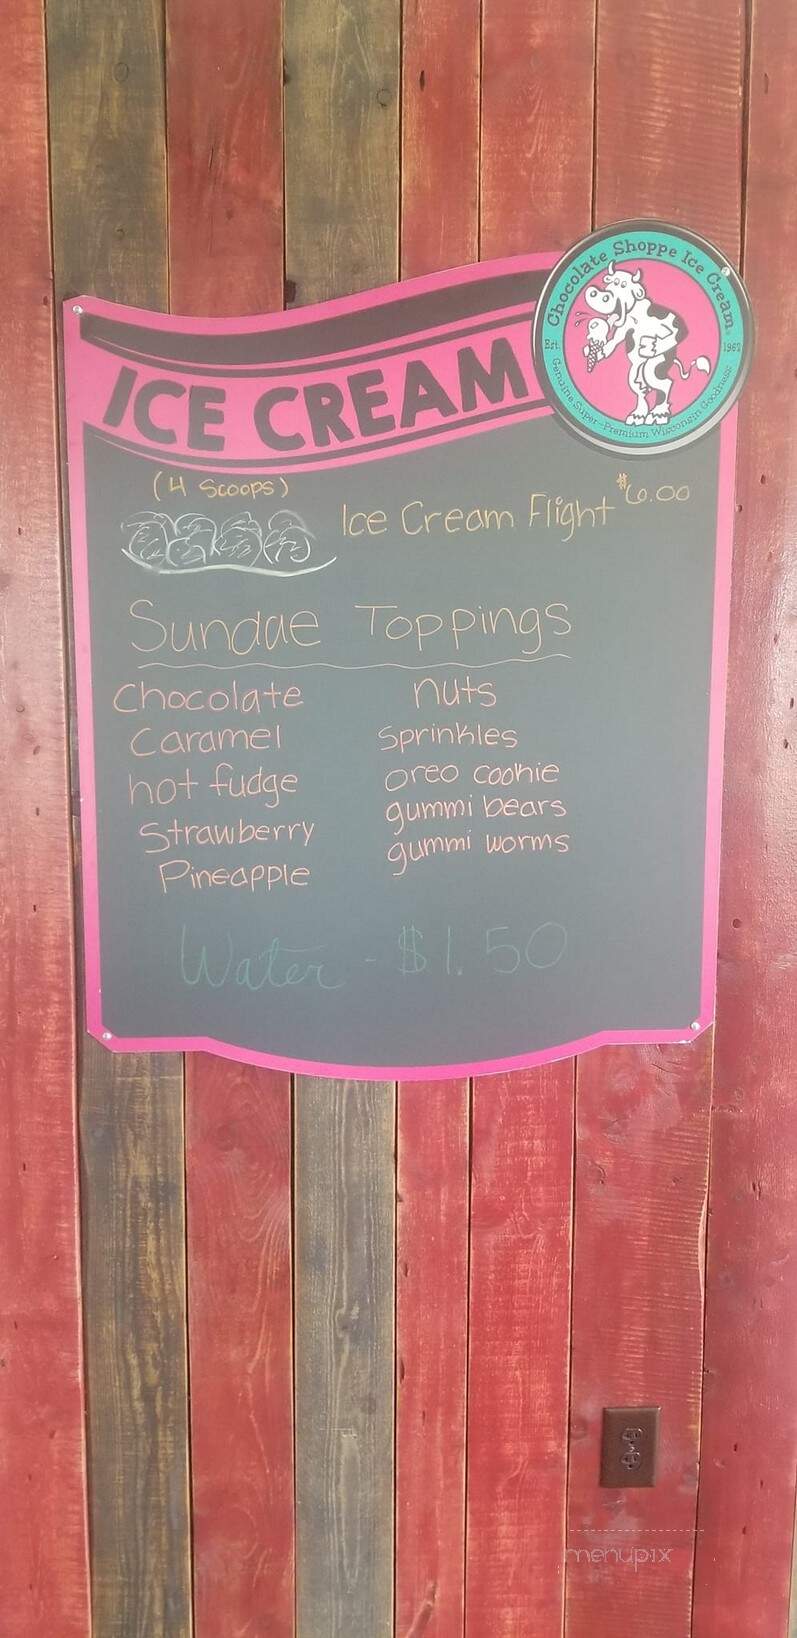 Chocolate Shoppe Ice Cream
Est. 1962
Genuine Super-Premium Wisconsin Goodness
ICE CREAM
(4 Scoops)
Ice Cream Flight $6.00
Sundae Toppings
Chocolate
Caramel
hot fudge
Strawberry
Pineapple
nuts
Sprinkles
oreo cookie
gummi bears
gummi worms
Water - $1.50
menupix